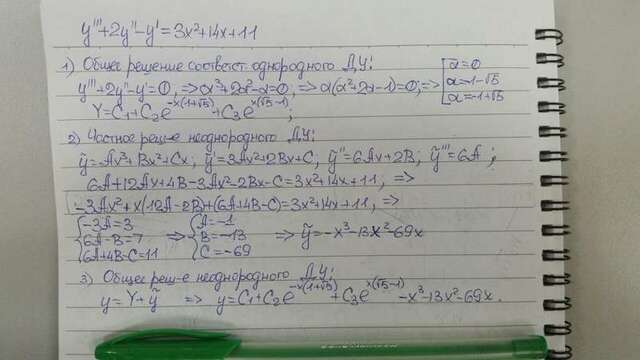 y'''+2y''-y'=3x²+14x+11
1) Общее решение соответст. однородного ДУ:
y'''+2y''-y'=0, => α³+2α²-α=0, => α(α²+2α-1)=0; => [α=0 α=-1-√5 α=-1+√5
Y=C₁+C₂e^(-x(1+√5))+C₃e^(x(√5-1));
2) Частное реш-е неоднородного ДУ:
ỹ=Ax³+Bx²+Cx; ỹ'=3Ax²+2Bx+C; ỹ''=6Ax+2B; ỹ'''=6A;
6A+12Ax+4B-3Ax²-2Bx-C=3x²+14x+11, =>
-3Ax²+x(12A-2B)+(6A+4B-C)=3x²+14x+11, =>
{-3A=3 6A-B=7 6A+4B-C=11 => {A=-1 B=-13 C=-69 => ỹ=-x³-13x²-69x
3) Общее реш-е неоднородного ДУ:
y=Y+ỹ => y=C₁+C₂e^(-x(1+√5))+C₃e^(x(√5-1))-x³-13x²-69x.